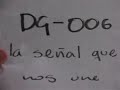 DG-006
la señal que
nos une